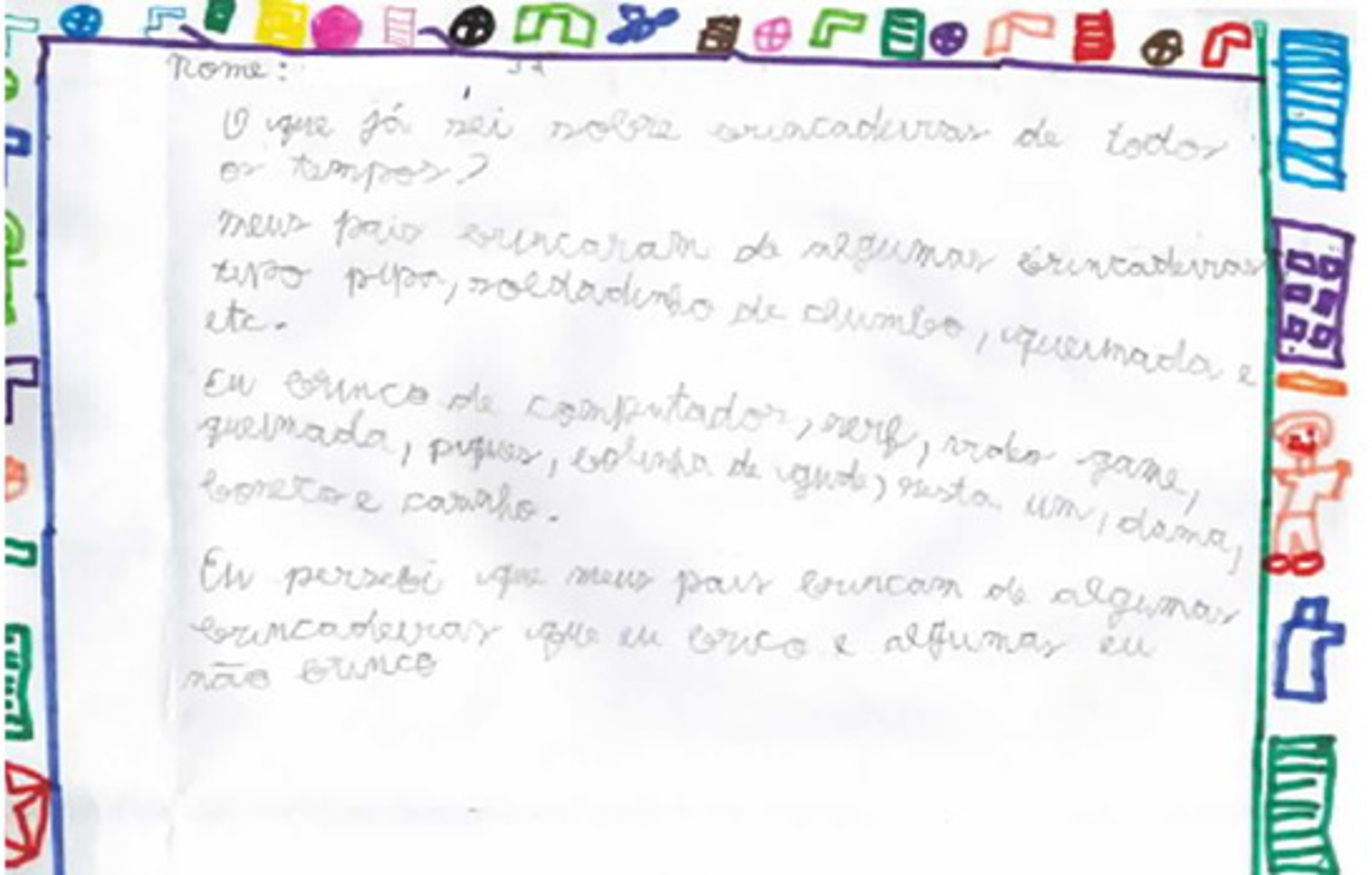 Nome:
O que já sei sobre brincadeiras de todos
os tempos?
Meus pais brincaram de algumas brincadeiras
tipo pipa, soldadinho de chumbo, queimada e
etc.
Eu brinco de computador, nerf, video game,
queimada, piques, bolinha de gude, resta um, dama,
boneco e carinho.
Eu persebi que meus pais brincam de algumas
brincadeiras que eu brico e algumas eu
não brinco